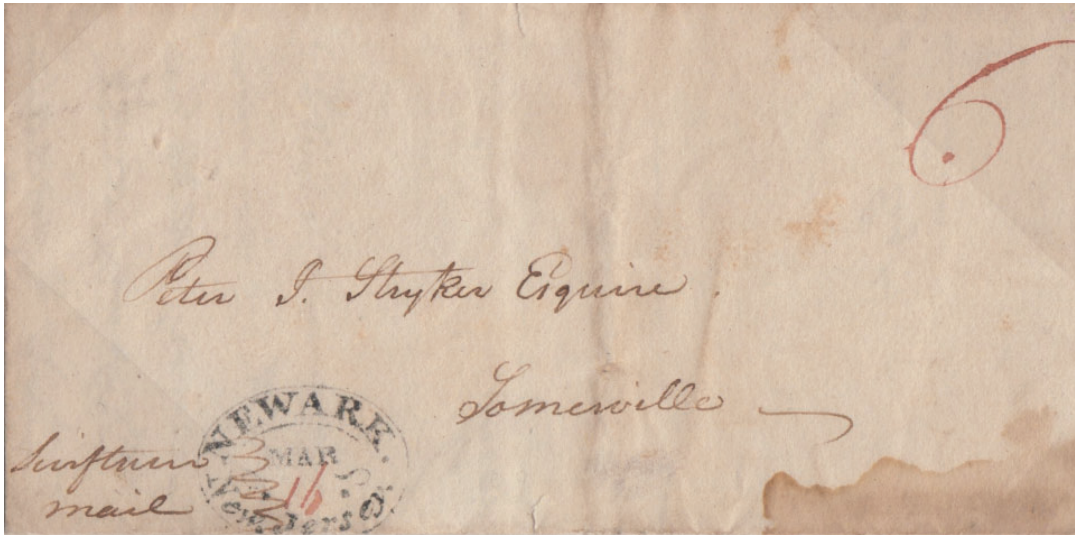 6
Peter I. Stryker Esquire
Somerville
NEWARK.
MAR
16
New Jersey.
Swiftsure
mail